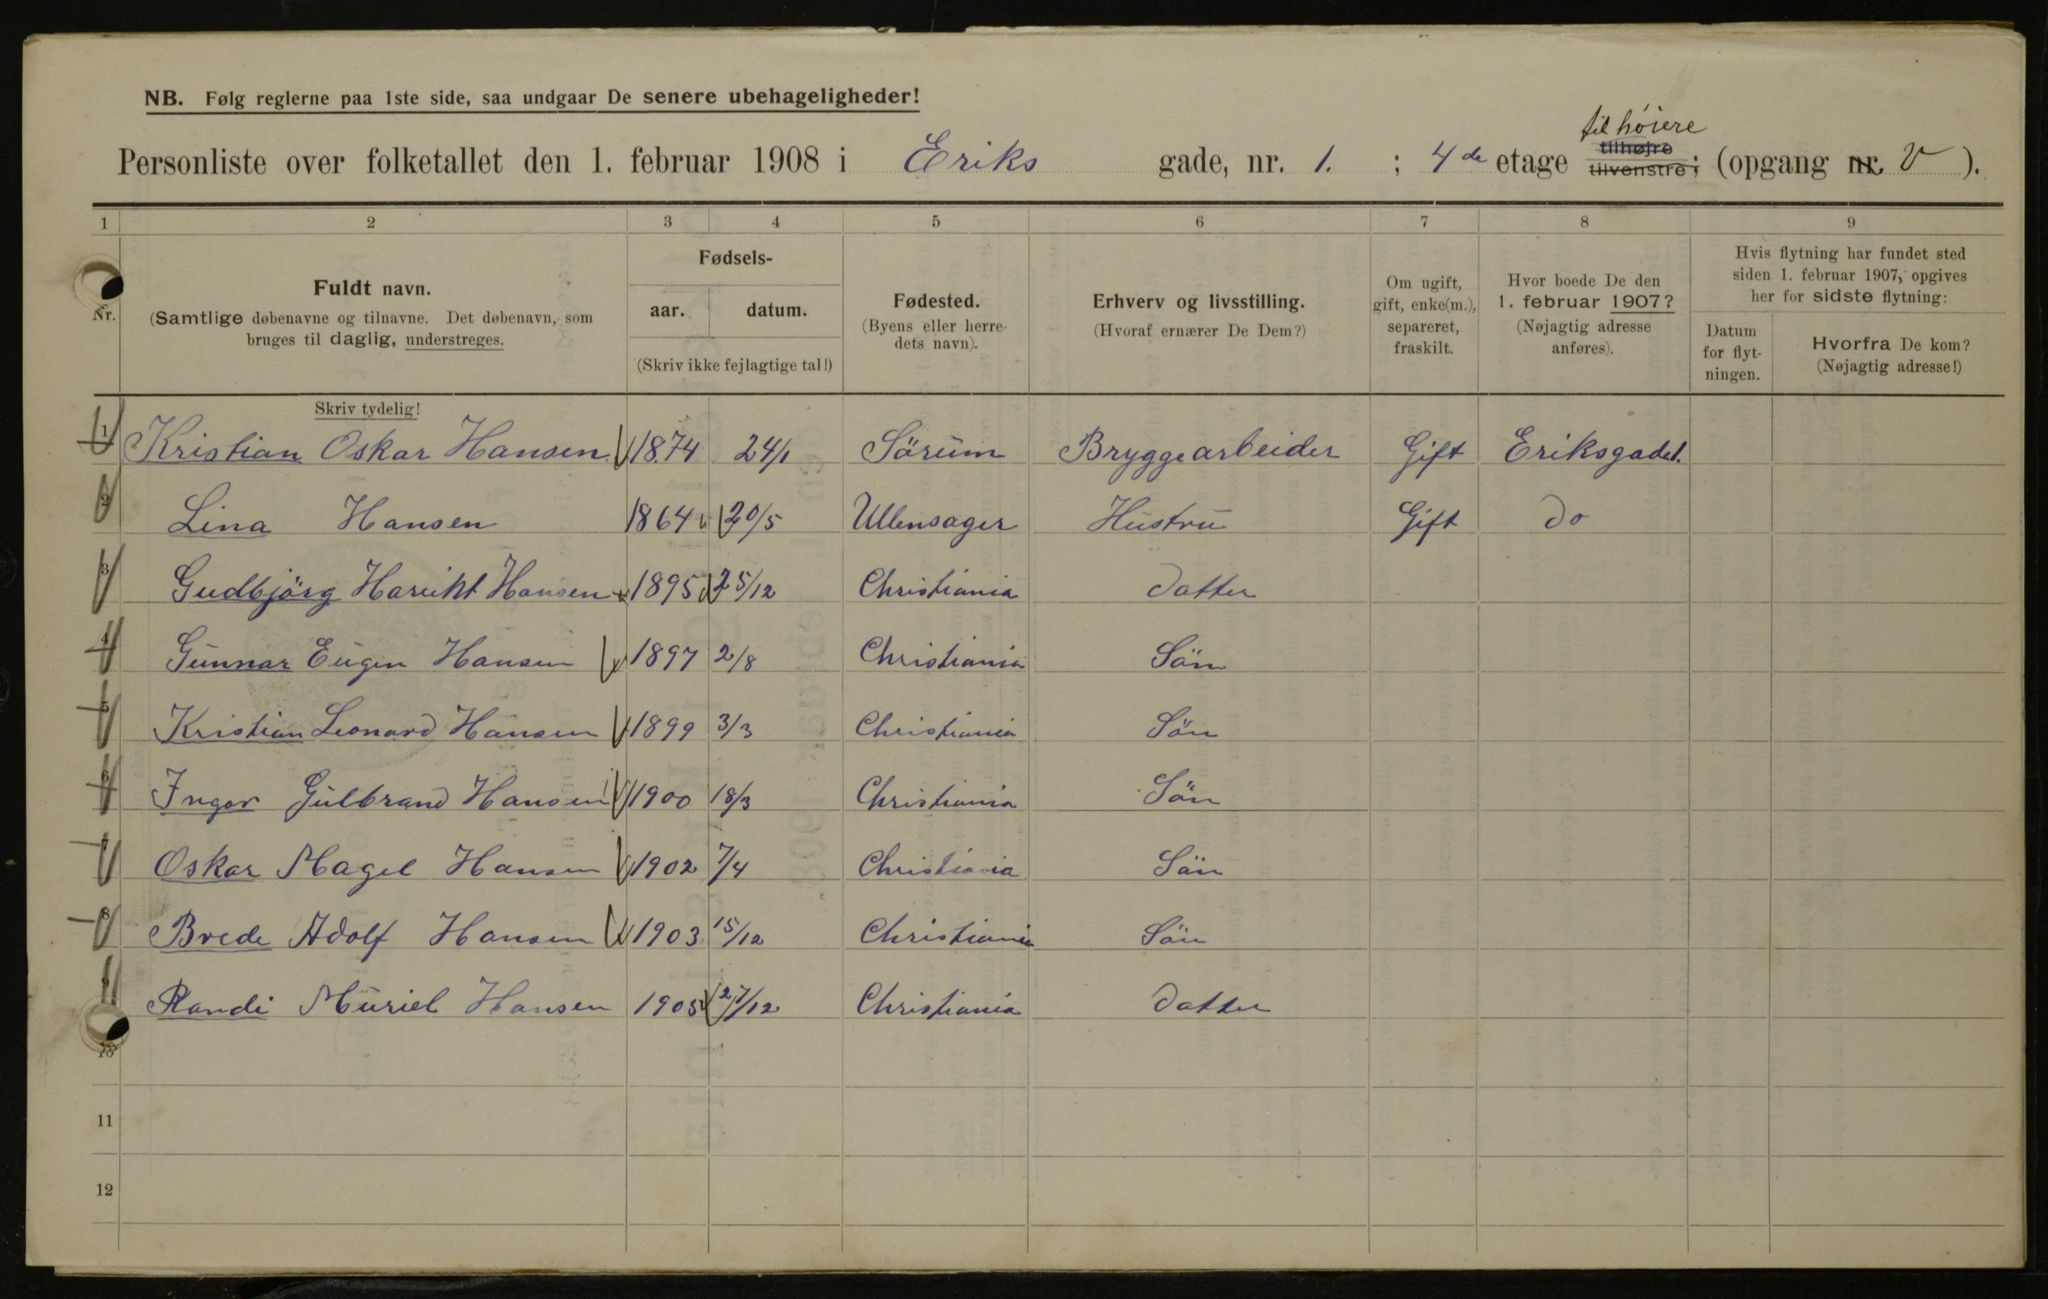 NB. Følg reglerne paa 1ste side, saa undgaar De senere ubehageligheder!
til höiere
Personliste over folketallet den 1. februar 1908 i Eriks gade, nr. 1. ; 4de etage tilhøjre tilvenstre ; (opgang nr. V ).
1 2 3 4 5 6 7 8 9
Nr.
Fuldt navn.
(Samtlige døbenavne og tilnavne. Det døbenavn, som
bruges til daglig, understreges.
Skriv tydelig!
Fødsels-
aar. datum.
(Skriv ikke fejlagtige tal!)
Fødested.
(Byens eller herre-
dets navn).
Erhverv og livsstilling.
(Hvoraf ernærer De Dem?)
Om ugift,
gift, enke(m.),
separeret,
fraskilt.
Hvor boede De den
1. februar 1907?
(Nøjagtig adresse
anføres).
Hvis flytning har fundet sted
siden 1. februar 1907, opgives
her for sidste flytning:
Datum
for flyt-
ningen.
Hvorfra De kom?
(Nøjagtig adresse!)
1 Kristian Oskar Hansen 1874 24/1 Sörum Bryggearbeider Gift Eriksgade1.
2 Lina Hansen 1864 20/5 Ullensager Hustru Gift do
3 Gudbjörg Hansen 1895 25/12 Christiania Datter
4 Gunnar Eugen Hansen 1897 2/8 Christiania Sön
5 Kristian Leonard Hansen 1899 3/3 Christiania Sön
6 Ingar Gulbrand Hansen 1900 18/3 Christiania Sön
7 Oskar Magel Hansen 1902 7/4 Christiania Sön
8 Brede Adolf Hansen 1903 15/12 Christiania Sön
Randi Muriel Hansen 1905 27/12 Christiania Datter
10
11
12